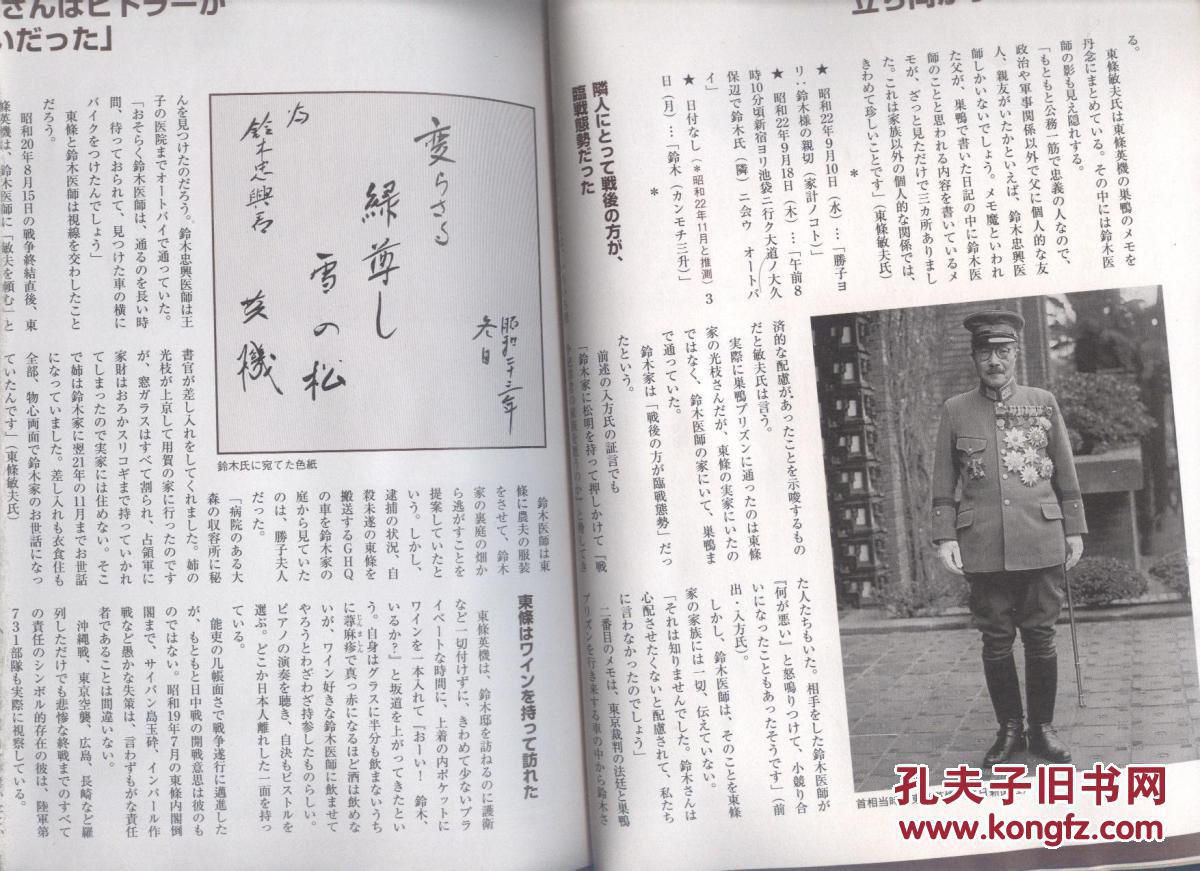 る。
　東條敏夫氏は東條英機の巣鴨のメモを
丹念にまとめている。その中には鈴木医
師の影も見え隠れする。
「もともと公務一筋で忠義の人なので、
政治や軍事関係以外で父に個人的な友
人、親友がいたかといえば、鈴木忠興医
師しかいないでしょう。メモ魔といわれ
た父が、巣鴨で書いた日記の中に鈴木医
師のことと思われる内容を書いているメ
モが、ざっと見ただけで三カ所ありまし
た。これは家族以外の個人的な関係では、
きわめて珍しいことです」（東條敏夫氏）
＊
★　昭和22年9月10日（水）…「勝子ヨ
リ：鈴木様の親切（家計ノコト）
★　昭和22年9月18日（木）…「午前8
時10分頃新宿ヨリ池袋ニ行ク大道ノ大久
保辺で鈴木氏（隣）ニ会ウ　オートバ
イ」
★　日付なし（＊昭和22年11月と推測）3
日（月）…「鈴木（カンモチ三升）」
＊
隣人にとって戦後の方が、
臨戦態勢だった
済的な配慮があったことを示唆するもの
だと敏夫氏は言う。
　実際に巣鴨プリズンに通ったのは東條
家の光枝さんだが、東條の実家にいたの
ではなく、鈴木医師の家にいて、巣鴨ま
で通っていた。
　鈴木家は「戦後の方が臨戦態勢」だっ
たという。
　前述の入方氏の証言でも
「鈴木家に松明を持って押しかけて『戦
た人たちもいた。相手をした鈴木医師が
『何が悪い』と怒鳴りつけて、小競り合
いになったこともあったそうです」（前
出・入方氏）。
　しかし、鈴木医師は、そのことを東條
家の家族には一切、伝えていない。
「それは知りませんでした。鈴木さんは
心配させたくないと配慮されて、私たち
に言わなかったのでしょう」
　二番目のメモは、東京裁判の法廷と巣鴨
プリズンを行き来する車の中から鈴木さ
首相当時
孔夫子旧书网
www.kongfz.com
さんはヒトラーが
いだった」
んを見つけたのだろう。鈴木忠興医師は王
子の医院までオートバイで通っていた。
「おそらく鈴木医師は、通るのを長い時
間、待っておられて、見つけた車の横に
バイクをつけたんでしょう」
　東條と鈴木医師は視線を交わしたこと
だろう。
　昭和20年8月15日の戦争終結直後、東
條英機は、鈴木医師に「敏夫を頼む」と
昭和二十三年
冬日
変らさる
緑尊し
雪の松
為
鈴木忠興君
英機
鈴木氏に宛てた色紙
　鈴木医師は東
條に農夫の服装
をさせて、鈴木
家の裏庭の畑か
ら逃がすことを
提案していたと
いう。しかし、
逮捕の状況、自
殺未遂の東條を
搬送するGHQ
の車を鈴木家の
庭から見ていた
のは、勝子夫人
だった。
「病院のある大
森の収容所に秘
書官が差し入れをしてくれました。姉の
光枝が上京して用賀の家に行ったのです
が、窓ガラスはすべて割られ、占領軍に
家財はおろかスリコギまで持っていかれ
てしまったので実家には住めない。そこ
で姉は鈴木家に翌21年の11月までお世話
になっていました。差し入れも衣食住も
全部、物心両面で鈴木家のお世話になっ
ていたんです」（東條敏夫氏）
東條はワインを持って訪れた
　東條英機は、鈴木邸を訪ねるのに護衛
など一切付けずに、きわめて少ないプラ
イベートな時間に、上着の内ポケットに
ワインを一本入れて「おーい！　鈴木、
いるか？」と坂道を上がってきたとい
う。自身はグラスに半分も飲まないうち
に蕁麻疹で真っ赤になるほど酒は飲めな
いが、ワイン好きな鈴木医師に飲ませて
やろうとわざわざ持参したものらしい。
ピアノの演奏を聴き、自決もピストルを
選ぶ。どこか日本人離れした一面を持っ
ている。
　能吏の几帳面さで戦争遂行に邁進した
が、もともと日中戦の開戦意思は彼のも
のではない。昭和19年7月の東條内閣倒
閣まで、サイパン島玉砕、インパール作
戦など愚かな失策は、言わずもがな責任
者であることは間違いない。
　沖縄戦、東京空襲、広島、長崎など羅
列しただけでも悲惨な終戦までのすべて
の責任のシンボル的存在の彼は、陸軍第
731部隊も実際に視察している。